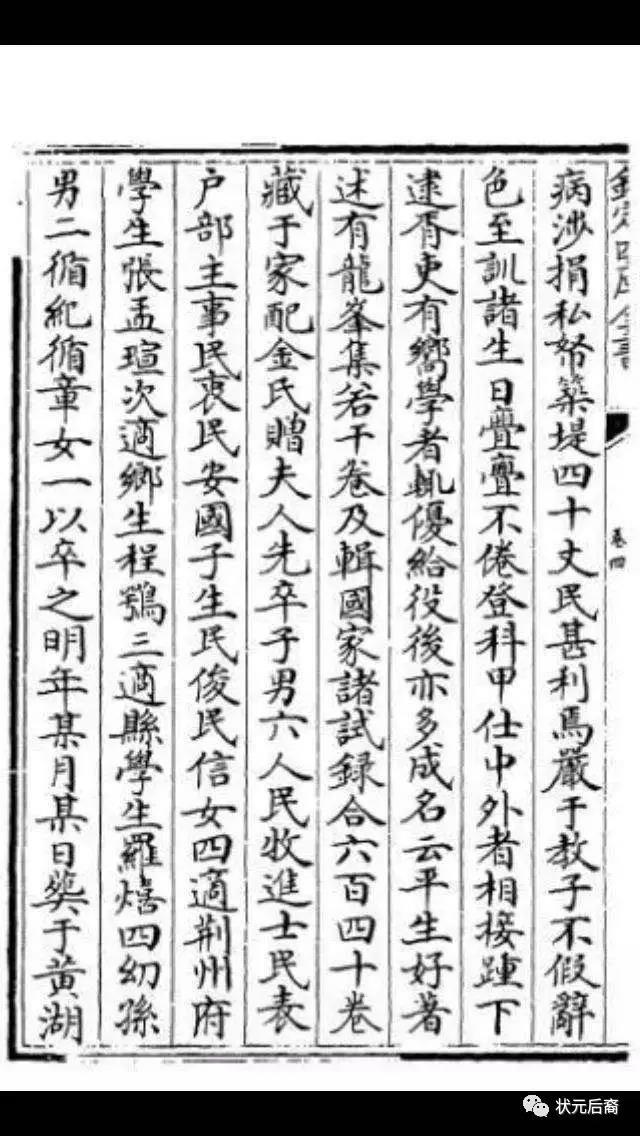 欽定四庫全書
卷四
病涉捐私帑築堤四十丈民甚利焉嚴于教子不假辭
色至訓諸生日亹亹不倦登科甲仕中外者相接踵下
逮胥吏有嚮學者輒優給役後亦多成名云平生好著
述有龍峯集若干卷及輯國家諸試録合六百四十卷
藏于家配金氏贈夫人先卒子男六人民收進士民表
户部主事民衷民安國子生民俊民信女四適荆州府
學生張孟瑄次適鄉生程鶚三適縣學生羅熺四幼孫
男二循紀循童女一以卒之明年某月某日葬于黄湖
状元后裔